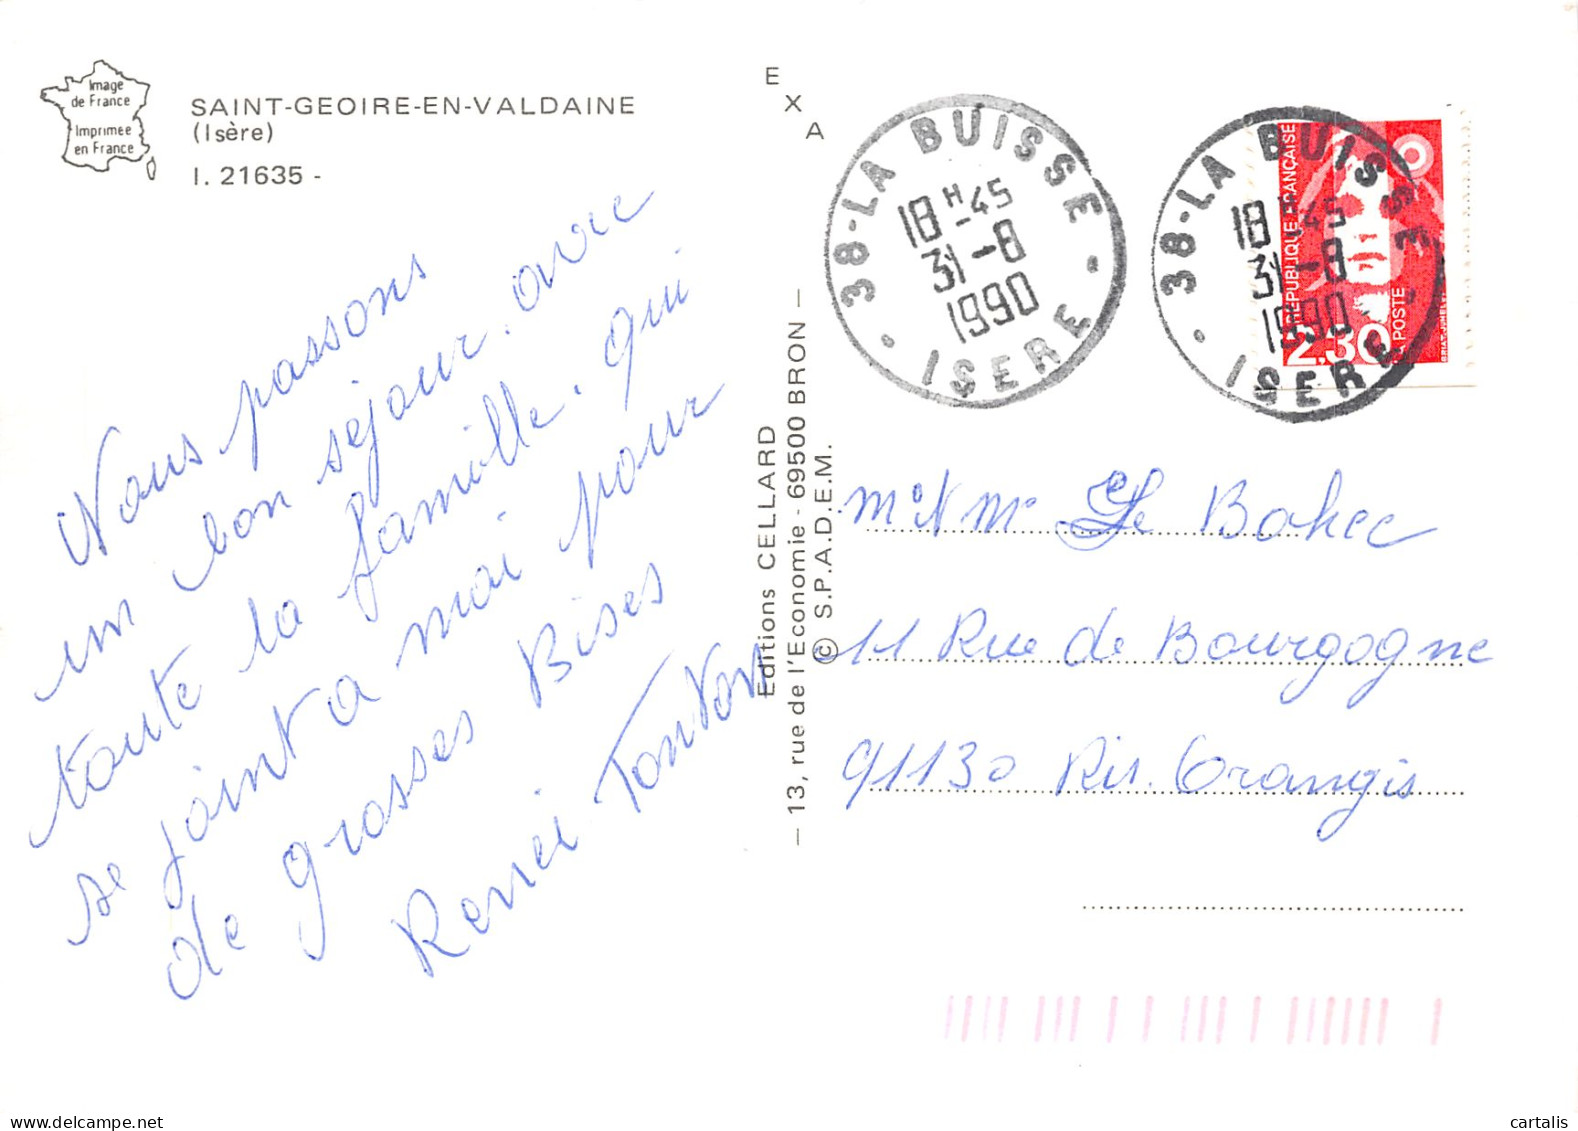 Image
de France
Imprimée
en France
SAINT-GEOIRE-EN-VALDAINE
(Isère)
I. 21635 -
Nous passons
un bon séjour. avec
toute la famille. qui
se joint a moi pour
de grosses Bises
Tonton
E
X
A
Editions CELLARD
— 13, rue de l'Economie - 69500 BRON —
© S.P.A.D.E.M.
38-LA BUISSE
18H-45
31-8
1990
ISERE
38-LA BUISSE
18 -45
31-8
1990
ISERE
REPUBLIQUE FRANÇAISE
2,30
LA POSTE
Le Bohec
11 Rue de Bourgogne
91130 Ris. Orangis
cartalis